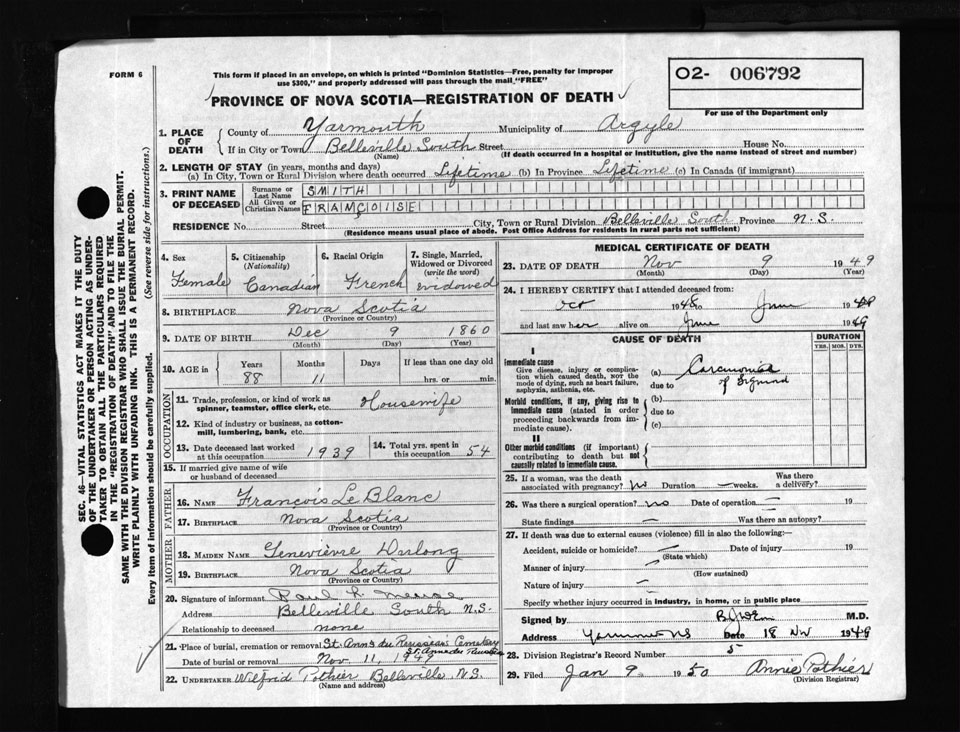 FORM 6
This form if placed in an envelope, on which is printed "Dominion Statistics—Free, penalty for improper
use $300," and properly addressed will pass through the mail "FREE"
O2- 006792
For use of the Department only
PROVINCE OF NOVA SCOTIA—REGISTRATION OF DEATH
1. PLACE OF DEATH
County of Yarmouth Municipality of Argyle
If in City or Town Belleville South Street House No.
(Name) (If death occurred in a hospital or institution, give the name instead of street and number)
2. LENGTH OF STAY (in years, months and days)
(a) In City, Town or Rural Division where death occurred Lifetime (b) In Province Lifetime (c) In Canada (if immigrant)
3. PRINT NAME OF DECEASED
Surname or Last Name SMITH
All Given or Christian Names FRANÇOISE
RESIDENCE No. Street City, Town or Rural Division Belleville South Province N.S.
(Residence means usual place of abode. Post Office Address for residents in rural parts not sufficient)
4. Sex Female
5. Citizenship (Nationality) Canadian
6. Racial Origin French
7. Single, Married, Widowed or Divorced (write the word) widowed
8. BIRTHPLACE Nova Scotia
(Province or Country)
9. DATE OF BIRTH Dec 9 1860
(Month) (Day) (Year)
10. AGE in Years 88 Months 11 Days If less than one day old hrs. or min.
OCCUPATION
11. Trade, profession, or kind of work as
spinner, teamster, office clerk, etc. Housewife
12. Kind of industry or business, as cotton-
mill, lumbering, bank, etc.
13. Date deceased last worked at this occupation 1939
14. Total yrs. spent in this occupation 54
15. If married give name of wife
or husband of deceased
FATHER
16. NAME François LeBlanc
17. BIRTHPLACE Nova Scotia
(Province or Country)
MOTHER
18. MAIDEN NAME Genevièvre
19. BIRTHPLACE Nova Scotia
(Province or Country)
20. Signature of informant Paul
Address Belleville South N.S.
Relationship to deceased none
21. Place of burial, cremation or removal St. Anns du Cemetery
Date of burial or removal Nov. 11, 1949
22. UNDERTAKER Wilfrid Pothier Belleville N.S.
(Name and address)
MEDICAL CERTIFICATE OF DEATH
23. DATE OF DEATH Nov 9 1949
(Month) (Day) (Year)
24. I HEREBY CERTIFY that I attended deceased from:
Oct 1948 to June 1949
and last saw her alive on June 1949
CAUSE OF DEATH
DURATION
YRS. MOS. DYS.
I
Immediate cause
Give disease, injury or complica-
tion which caused death, NOT the
mode of dying, such as heart failure,
asphyxia, asthenia, etc.
(a) Carcinoma
due to of Sigmoid
Morbid conditions, if any, giving rise to
immediate cause (stated in order
proceeding backwards from im-
mediate cause).
(b)
due to
(c)
II
Other morbid conditions (if important)
contributing to death but not
causally related to immediate cause.
25. If a woman, was the death
associated with pregnancy? No Duration — weeks. Was there a delivery? —
26. Was there a surgical operation? no Date of operation — 19
State findings — Was there an autopsy?
27. If death was due to external causes (violence) fill in also the following:—
Accident, suicide or homicide? — Date of injury 19
(State which)
Manner of injury
(How sustained)
Nature of injury —
Specify whether injury occurred in industry, in home, or in public place
Signed by M.D.
Address Yarmouth NS Date 18 Nov 1949
28. Division Registrar's Record Number 5
29. Filed Jan 9 1950 Annie Pothier
(Division Registrar)
SEC. 46—VITAL STATISTICS ACT MAKES IT THE DUTY
OF THE UNDERTAKER OR PERSON ACTING AS UNDER-
TAKER TO OBTAIN ALL THE PARTICULARS REQUIRED
IN THE "REGISTRATION OF DEATH" AND TO FILE THE
SAME WITH THE DIVISION REGISTRAR WHO SHALL ISSUE THE BURIAL PERMIT.
WRITE PLAINLY WITH UNFADING INK. THIS IS A PERMANENT RECORD.
Every item of information should be carefully supplied. (See reverse side for instructions.)